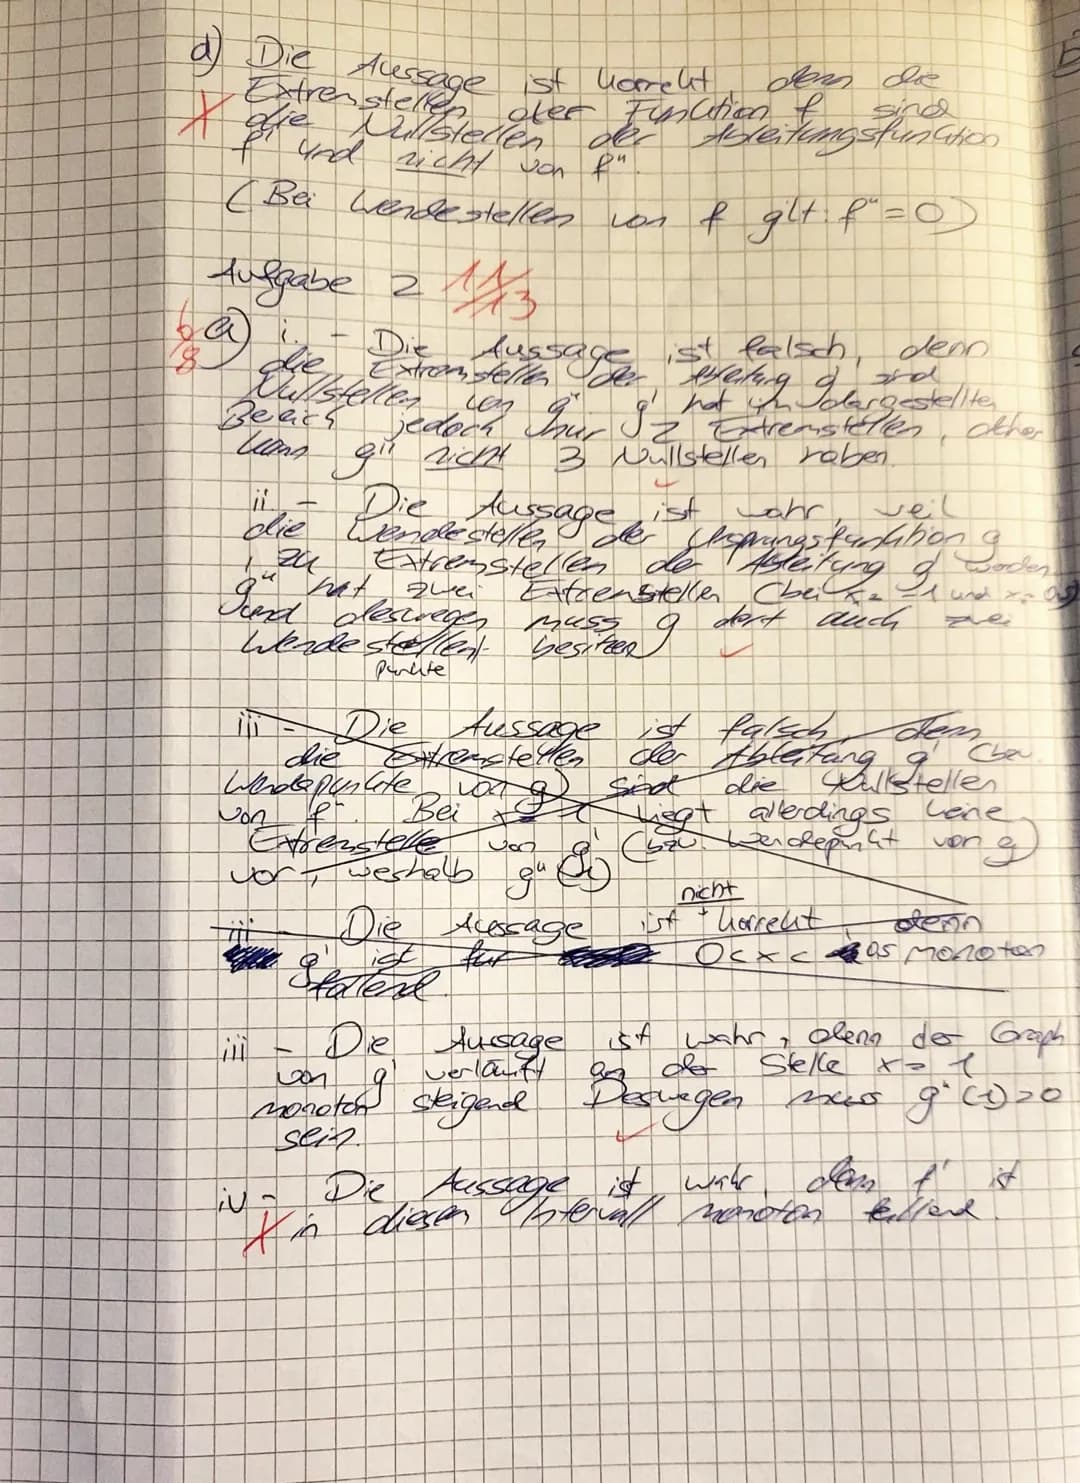 d) Die Aussage ist korrekt, denn die
Extremstellen der Funktion f sind
die Nullstellen der Ableitungsfunktion
f' und nicht von f".
(Bei Wendestellen von f gilt: f"=0)
Aufgabe 2 11/13
6/8 a) i. - Die Aussage ist falsch, denn
die Extremstellen der Ableitung g' sind
Nullstellen von g". g' hat im dargestellten
Bereich jedoch nur 2 Extremstellen, daher
kann g" nicht 3 Nullstellen haben.
ii - Die Aussage ist wahr, weil
die Wendestellen der Ursprungsfunktion g
zu Extremstellen der Ableitung g' werden.
g" hat zwei Extremstellen (bei x = -1 und x = 0,5)
und deswegen muss g dort auch zwei
Wendestellen besitzen
punkte
iii - Die Aussage ist falsch, denn
die Extremstellen der Ableitung g' (bzw.
Wendepunkte von g) sind die Nullstellen
von f". Bei liegt allerdings keine
Extremstelle von g' (bzw. Wendepunkt von g)
vor, weshalb g" (1)
nicht
iii Die Aussage ist korrekt, denn
g' ist für 0<x< 0,5 monoton
fallend.
iii - Die Aussage ist wahr, denn der Graph
von g' verläuft an der Stelle x = 1
monoton steigend. Deswegen muss g" (1)>0
sein.
iv - Die Aussage ist wahr, denn f' ist
in diesem Intervall monoton fallend.